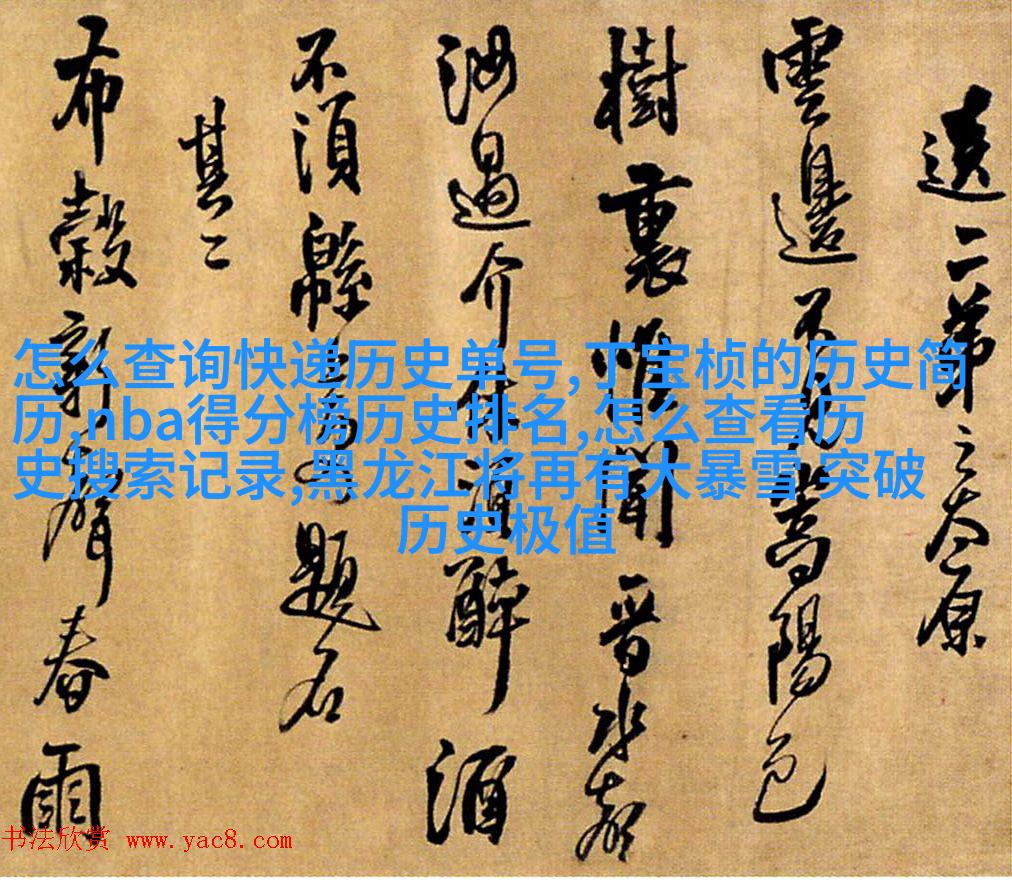 二弟之太原
雲邊不見嵩陽色
樹裏惟聞晋水聲
汝過介休酹酒
不須緜上題名
其二
布穀新聲春雨
怎么查询快递历史单号,丁宝桢的历史简
历,nba得分榜历史排名,怎么查看历
史搜索记录,黑龙江将再有大暴雪 突破
历史极值
书法欣赏 www.yac8.com